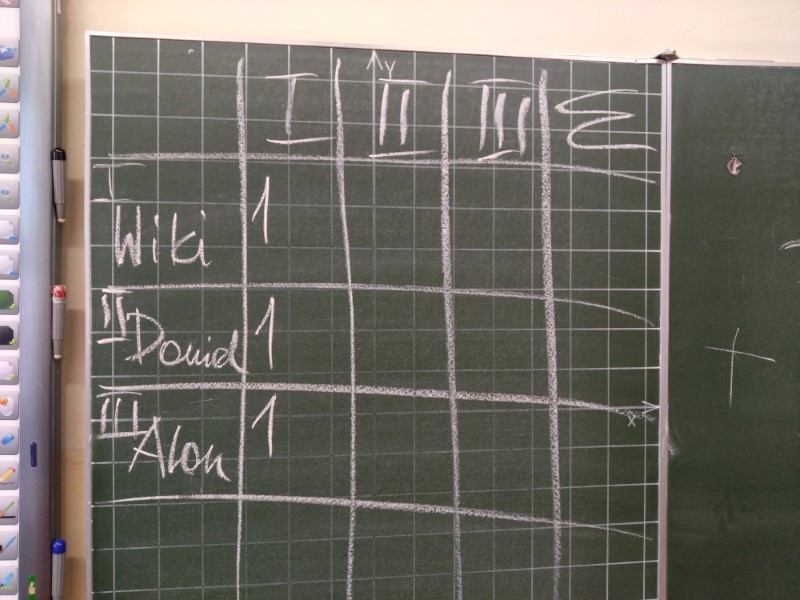 Y
I II III Σ
I
Wiki 1
II
Dawid 1
III
X
Alon 1